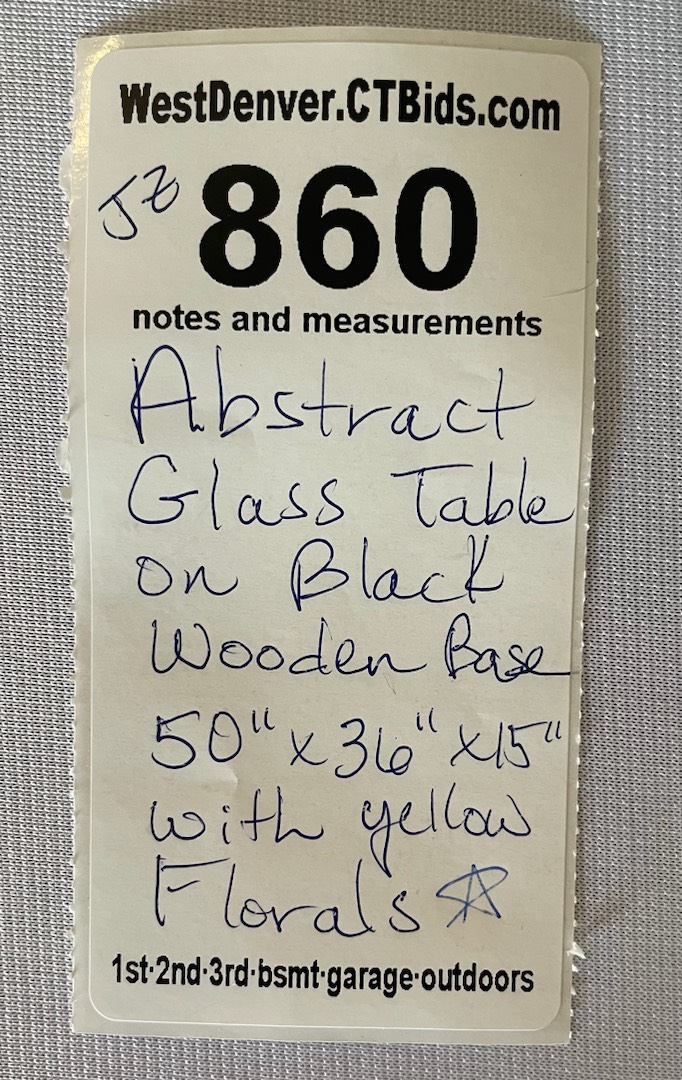 WestDenver.CTBids.com
JZ 860
notes and measurements
Abstract
Glass Table
on Black
Wooden Base
50" x 36" x 15"
with yellow
Florals
1st·2nd·3rd·bsmt·garage·outdoors